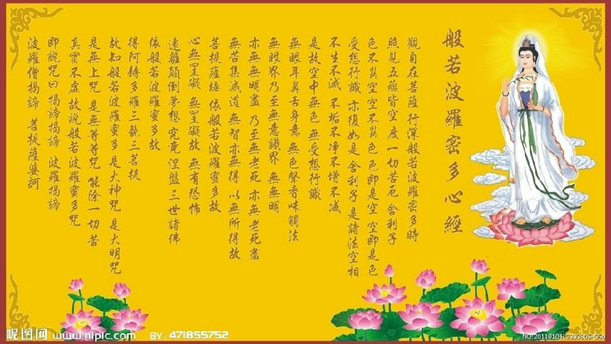 般若波羅密多心經
觀自在菩薩 行深般若波羅密多時
照見五蘊皆空 度一切苦厄 舍利子
色不異空 空不異色 色即是空 空即是色
受想行識 亦復如是 舍利子 是諸法空相
不生不滅 不垢不淨 不增不減
是故空中無色 無受想行識
無眼耳鼻舌身意 無色聲香味觸法
無眼界 乃至無意識界 無無明
亦無無明盡 乃至無老死 亦無老死盡
無苦集滅道 無智亦無得 以無所得故
菩提薩埵 依般若波羅密多故
心無罣礙 無罣礙故 無有恐怖
遠離顛倒夢想 究竟涅盤 三世諸佛
依般若波羅密多故
得阿耨多羅三藐三菩提
故知般若波羅密多 是大神咒 是大明咒
是無上咒 是無等等咒 能除一切苦
真實不虛 故說般若波羅密多咒
即說咒曰 揭諦揭諦 波羅揭諦
波羅僧揭諦 菩提薩婆訶
昵图网 www.nipic.com BY: 471855752